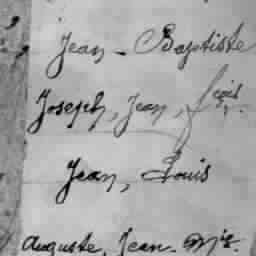 Jean - Baptiste
Joseph, Jean, fçois
Jean, Louis
Auguste, Jean - Mie.